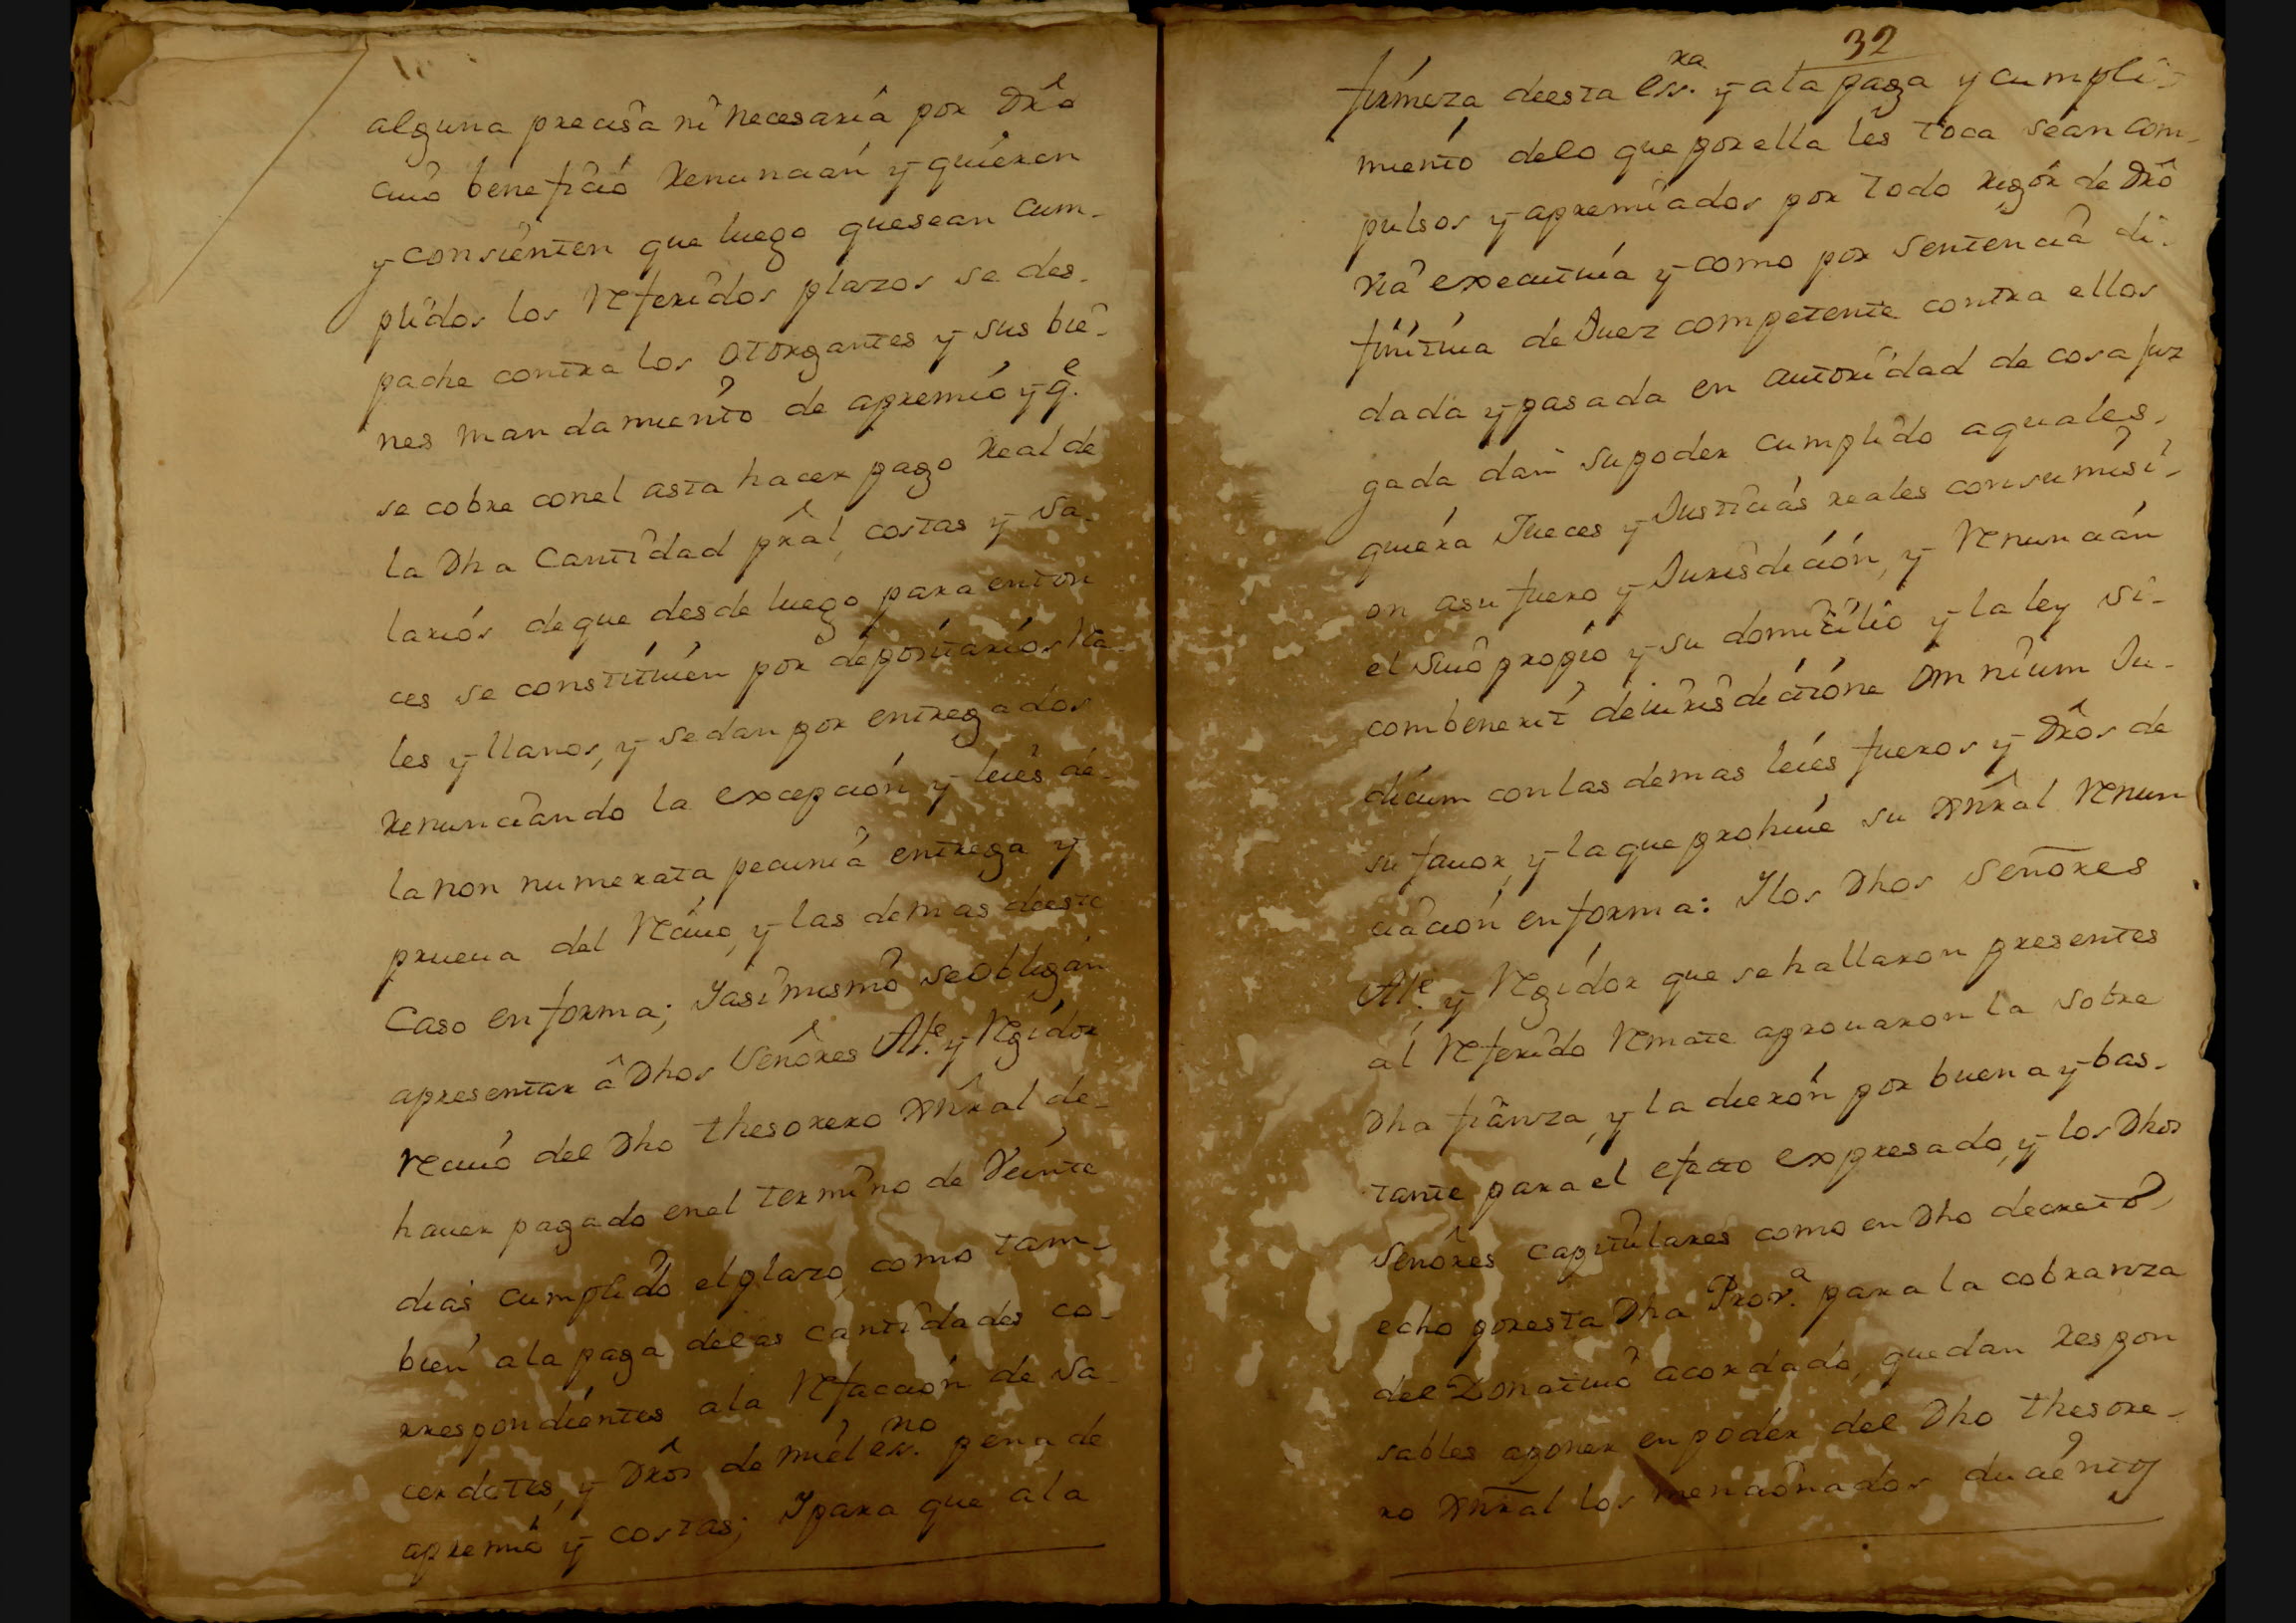 alguna precisa ni necesaria por dro
cuio beneficio renuncian y quieren
y consienten que luego quesean cum-
plidos los referidos plazos se des-
pache contra los otorgantes y sus bie-
nes mandamiento de apremio y q.e
se cobre conel asta hacer pago real de
la dha cantidad pral, costas y sa-
larios deque desde luego para enton
ces se constituien por depositarios rea-
les y llanos, y sedan por entregados
renunciando la excepcion y leies de-
la non numerata pecunia entrega y
prueua del reciuo, y las demas deeste
caso en forma; Yasimismo se obligan
apresentar â dhos Señores Alc.e y Regidor
reciuo del dho thesorero Gnral de-
hauer pagado enel termino de Veinte
dias cumplido elplazo, como tam-
bien ala paga delas cantidades co-
rrespondientes ala refaccion de Sa-
cerdotes, y dros de mi el ess.no pena de
apremio y costas; Ypara que ala
32
firmeza deesta ess.ra y ala paga y cumpli-
miento delo que porella les toca sean com-
pulsos y apremiados por todo rigor de dro
via executiua y como por sentencia di-
finitiua de Juez competente contra ellos
dada y pasada en autoridad de cosa juz
gada dan supoder cumplido aquales-
quiera Jueces y Justicias reales consumisi-
on asu fuero y Jurisdicion, y renuncian
el suio propio y su domicilio y la ley si-
combenerit dejurisdictione omnium Ju-
dicum conlas demas leies fueros y dros de
su fauor, y laque prohiue su Gnral renun
ciacion enforma: Ylos dhos Señores
Alc.e y Regidor que sehallaron presentes
al referido remate aprouaron la sobre
dha fianza, y la dieron por buena y bas-
tante para el efecto expresado, y los dhos
Señores capitulares como en dho decreto
echo poresta dha Prov.a para la cobranza
del Donatiuo acordado, quedan respon
sables aponer enpoder del dho thesore-
ro Gnral los mencionados ducientos